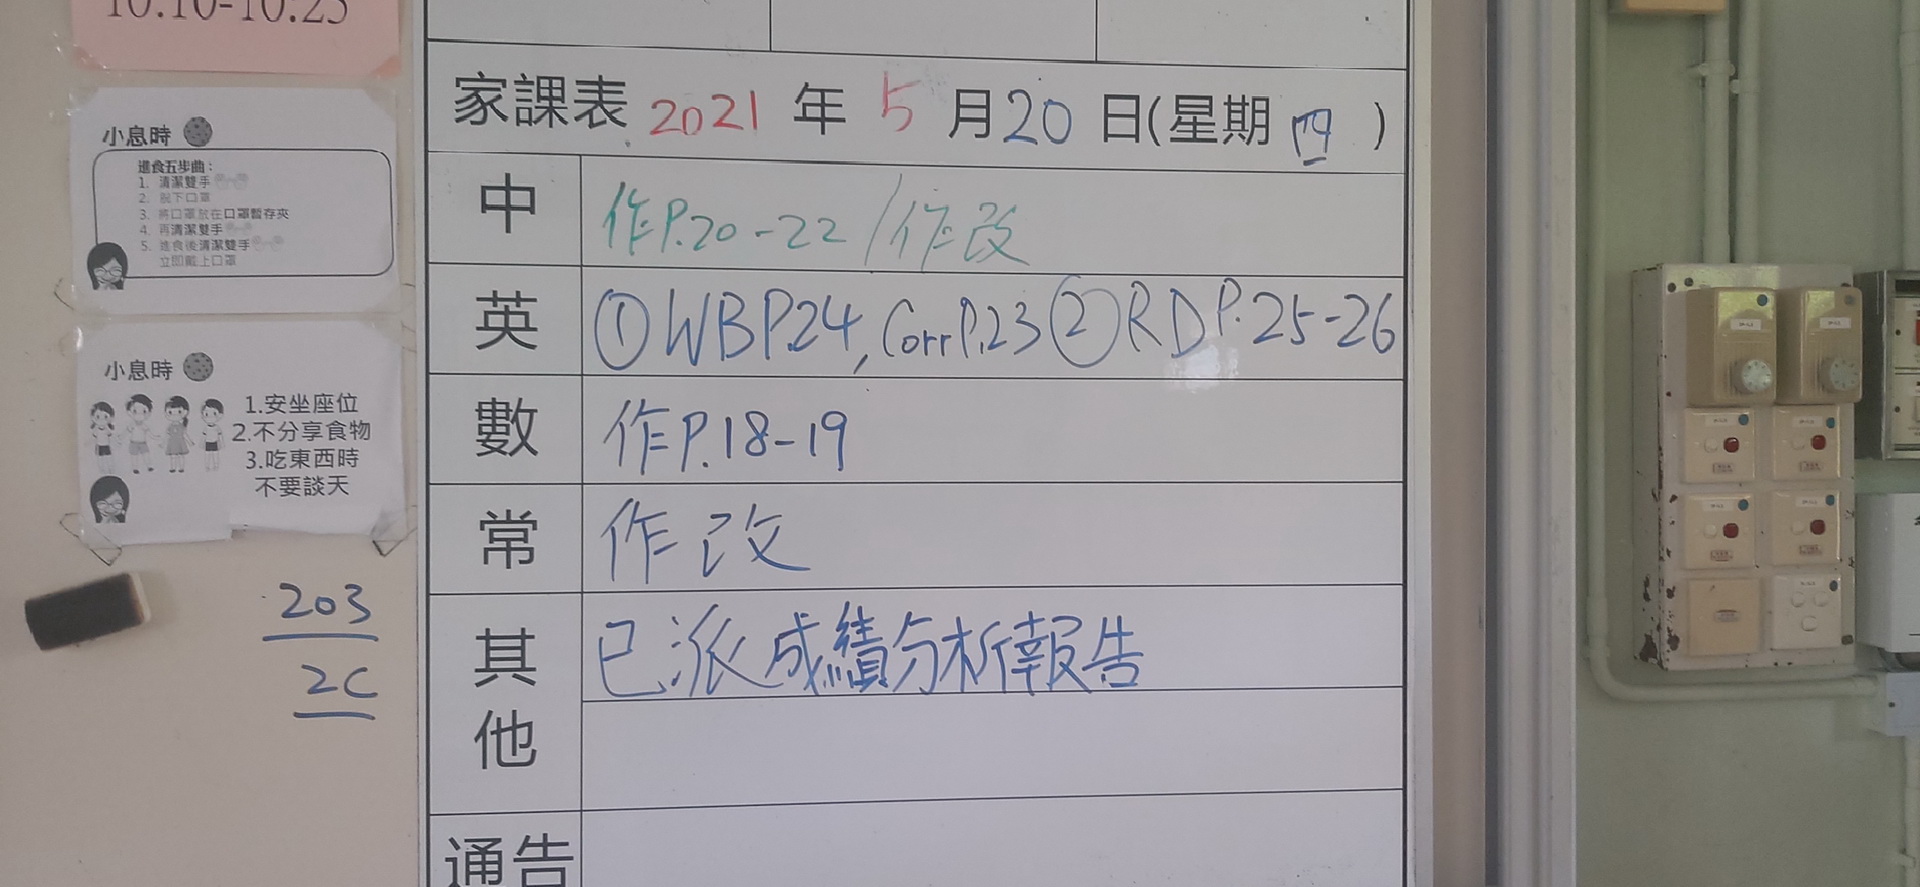 10:10-10:25
小息時
進食五步曲：
1. 清潔雙手
2. 脫下口罩
3. 將口罩放在口罩暫存夾
4. 再清潔雙手
5. 進食後清潔雙手
立即戴上口罩
小息時
1.安坐座位
2.不分享食物
3.吃東西時
不要談天
203
2C
家課表 2021 年 5 月 20 日(星期 四 )
中 作P.20-22/作改
英 ①WB P.24, Corr P.23 ②RD P.25-26
數 作P.18-19
常 作改
其他 已派成績分析報告
通告